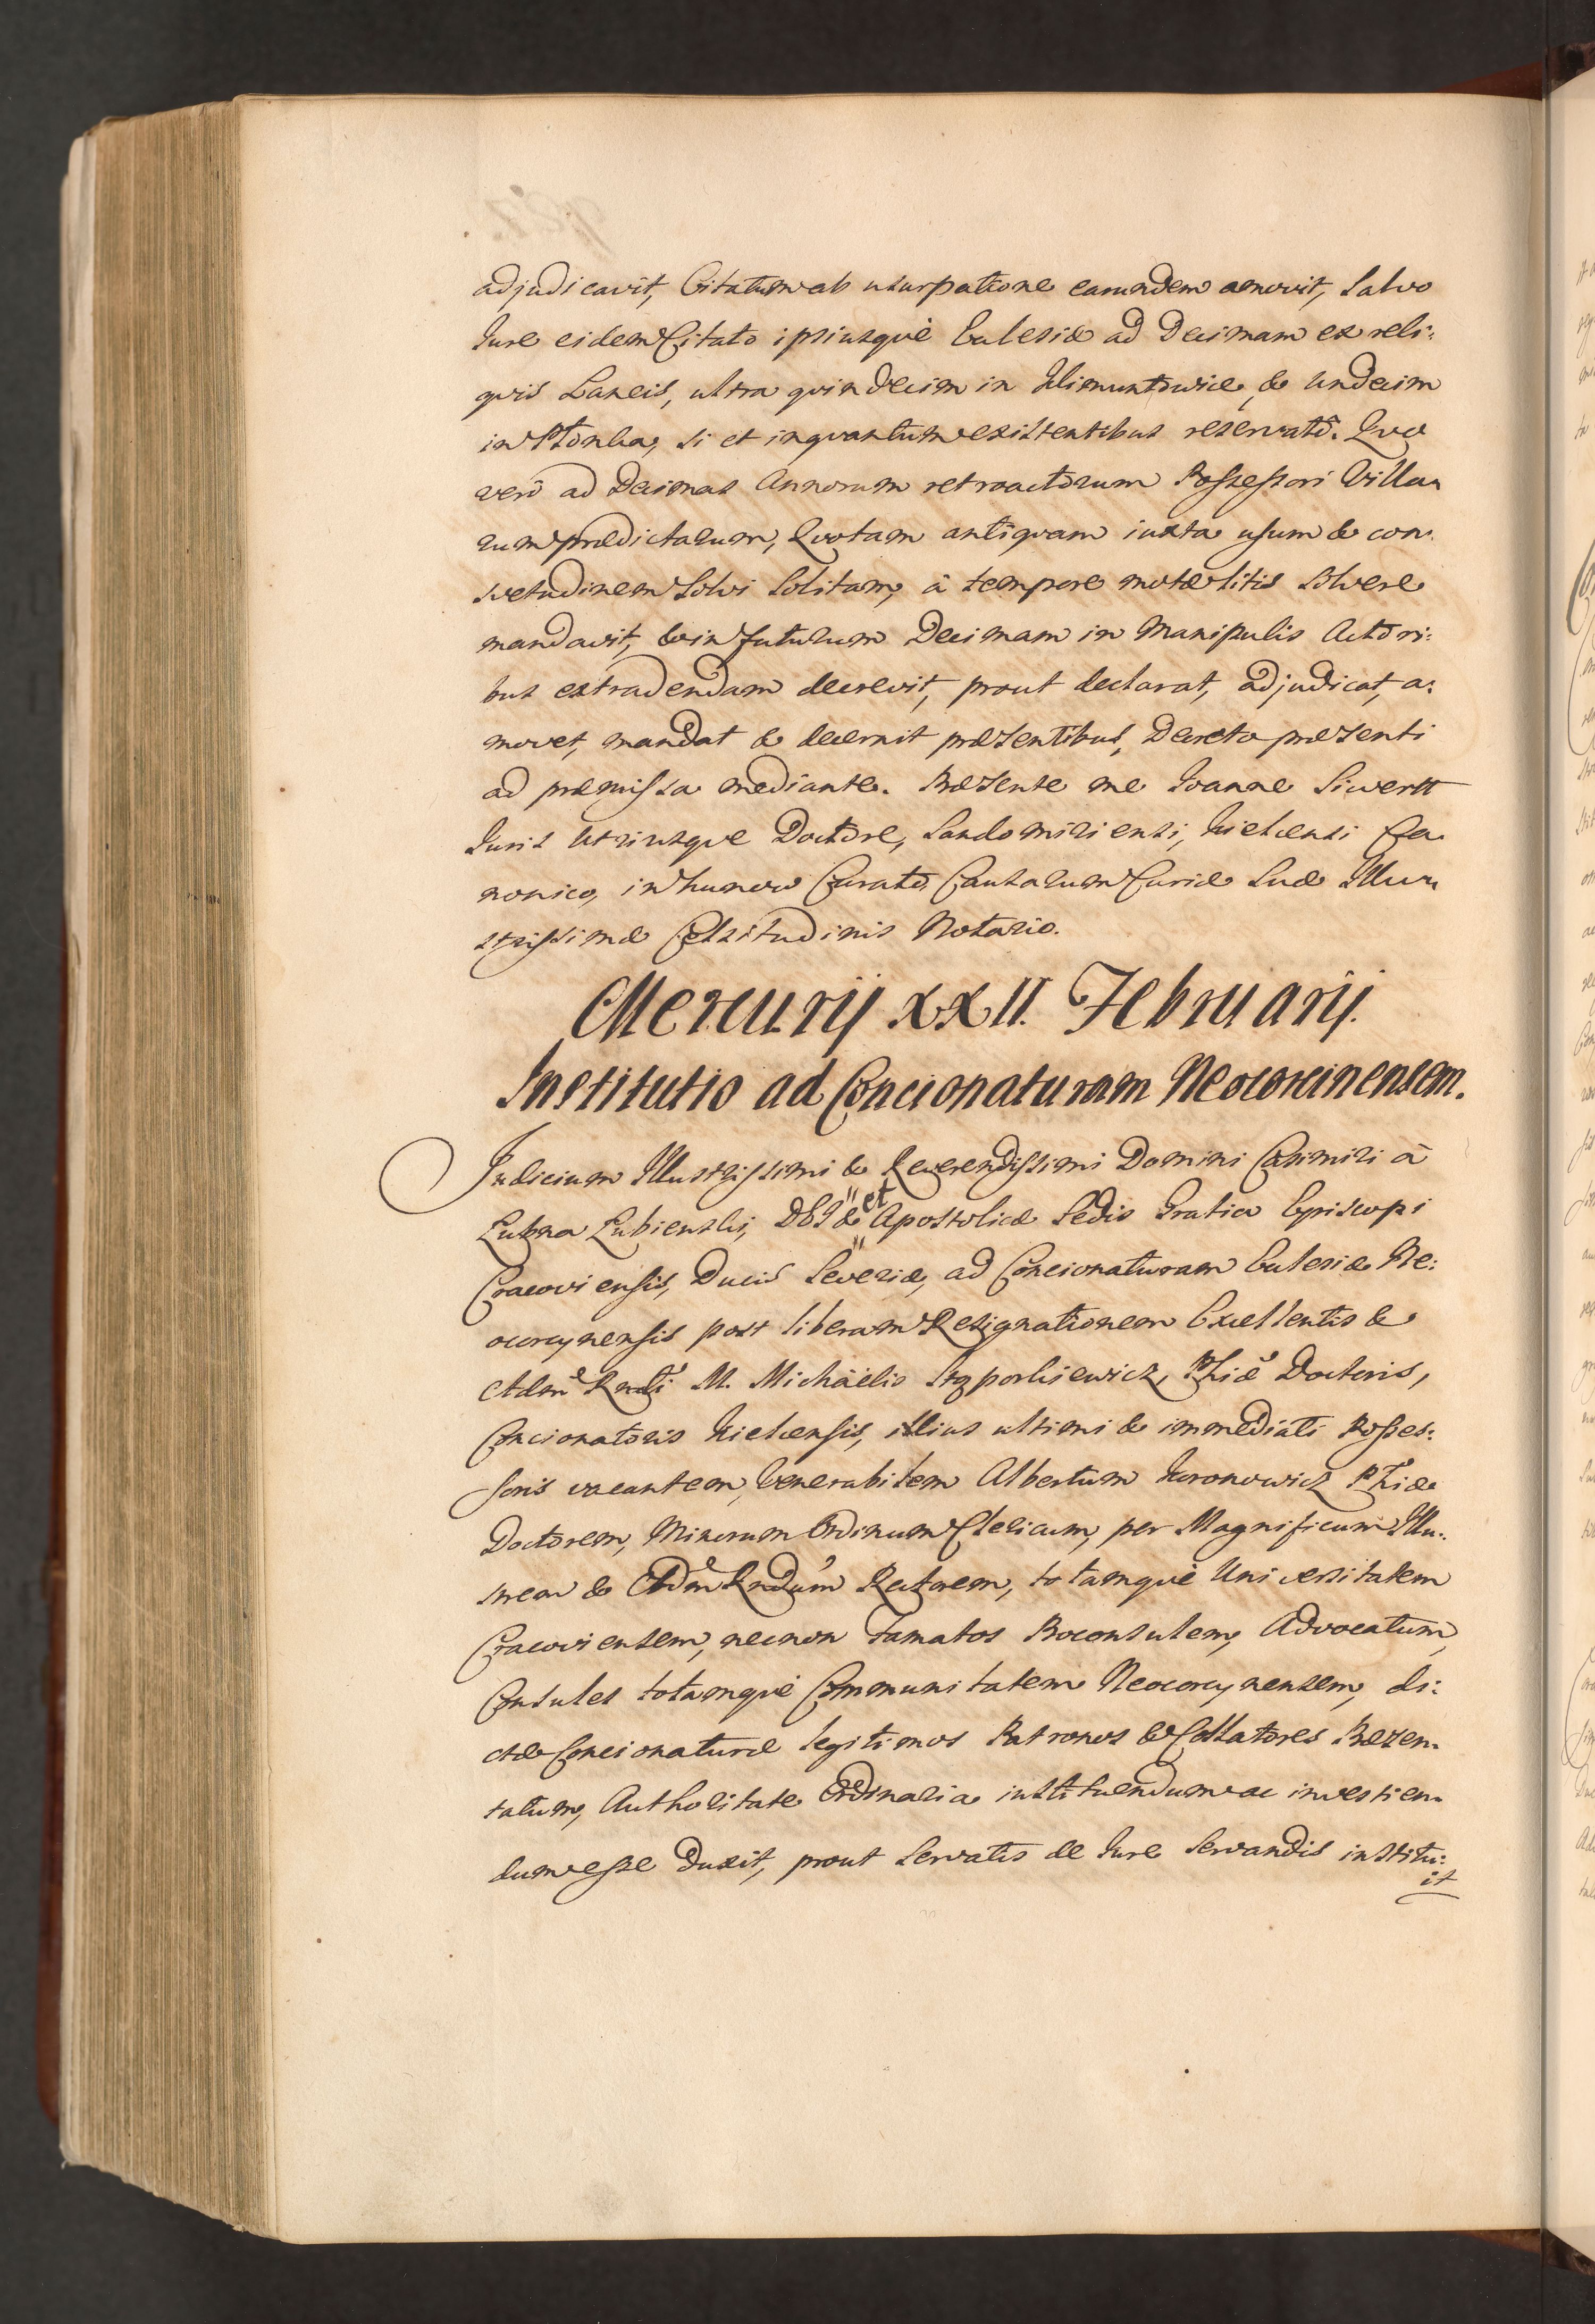 adjudicavit, Citatum ab usurpatione earundem amovit, Salvo
Jure eidem Citato ipsiusquè Ecclesiæ ad Decimam ex reli:
qvis Laneis, ultra qvindecim in Klimuntowice, & undecim
in Stonka, si et inqvantum existentibus reservatô. Qvo
verò ad Decimas Annorum retroactorum Possessori Villa„
rum prædictarum, Qvotam antiqvam iuxta usum & con„
svetudinem Solvi Solitam, à tempore motæ litis Solvere
mandavit, & in futurum Decimam in Manipulis Actori:
bus extradendam decrevit, prout declarat, adjudicat, a:
movet, mandat & decernit præsentibus, Decreto præsenti
ad præmissa mediante. Præsente me Joanne Siwertt
Juris Utriusque Doctore, Sandomiriensi, Kielcensi Ca„
nonico, in hunow Curato, Causarum Curiæ Suæ Illu„
strissimæ Celsitudinis Notario.
Mercurij XXII. Februarij.
Institutio ad Concionaturam Neocorcinensem.
Judicium Illustrissimi & Reverendissimi Domini Casimiri à
Łubna Łubienski, DEI & et Apostolicæ Sedis Gratia Episcopi
Cracoviensis, Ducis Severiæ, ad Concionaturam Ecclesiæ Ne:
ocorcynensis post liberam Resignationem Excellentis &
Adm Rndi M. Michäelis Stqporkiewicz, Phiæ Doctoris,
Concionatoris Kielcensis, illius ultimi & immediati Posses:
soris vacantem, Venerabilem Albertum Juronowicz Phiæ
Doctorem, Minorum Ordinum Clericum, per Magnificum Illu:
strem & Adm Rndum Rectorem, totamquè Universitatem
Cracoviensem, necnon Famatos Proconsulem, Advocatum,
Consules totamquè Communitatem Neocorcynensem, di:
ctæ Concionaturæ legitimos Patronos & Collatores Præsen„
tatum, Authoritate Ordinaria instituendum ac investien„
dum esse duxit, prout Servatis de Jure Servandis institu:
it